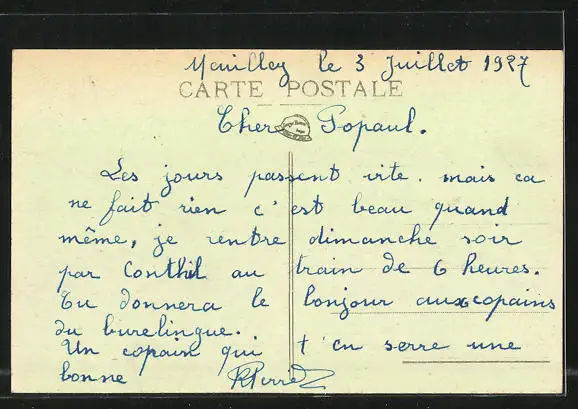 Mailley le 3 Juillet 1927
CARTE POSTALE
Cher Popaul.
Les jours passent vite. mais ca
ne fait rien c'est beau quand
même, je rentre dimanche soir
par Conthil au train de 6 heures.
tu donnera le bonjour aux copains
du burelingue.
Un copain qui t'en serre une
bonne